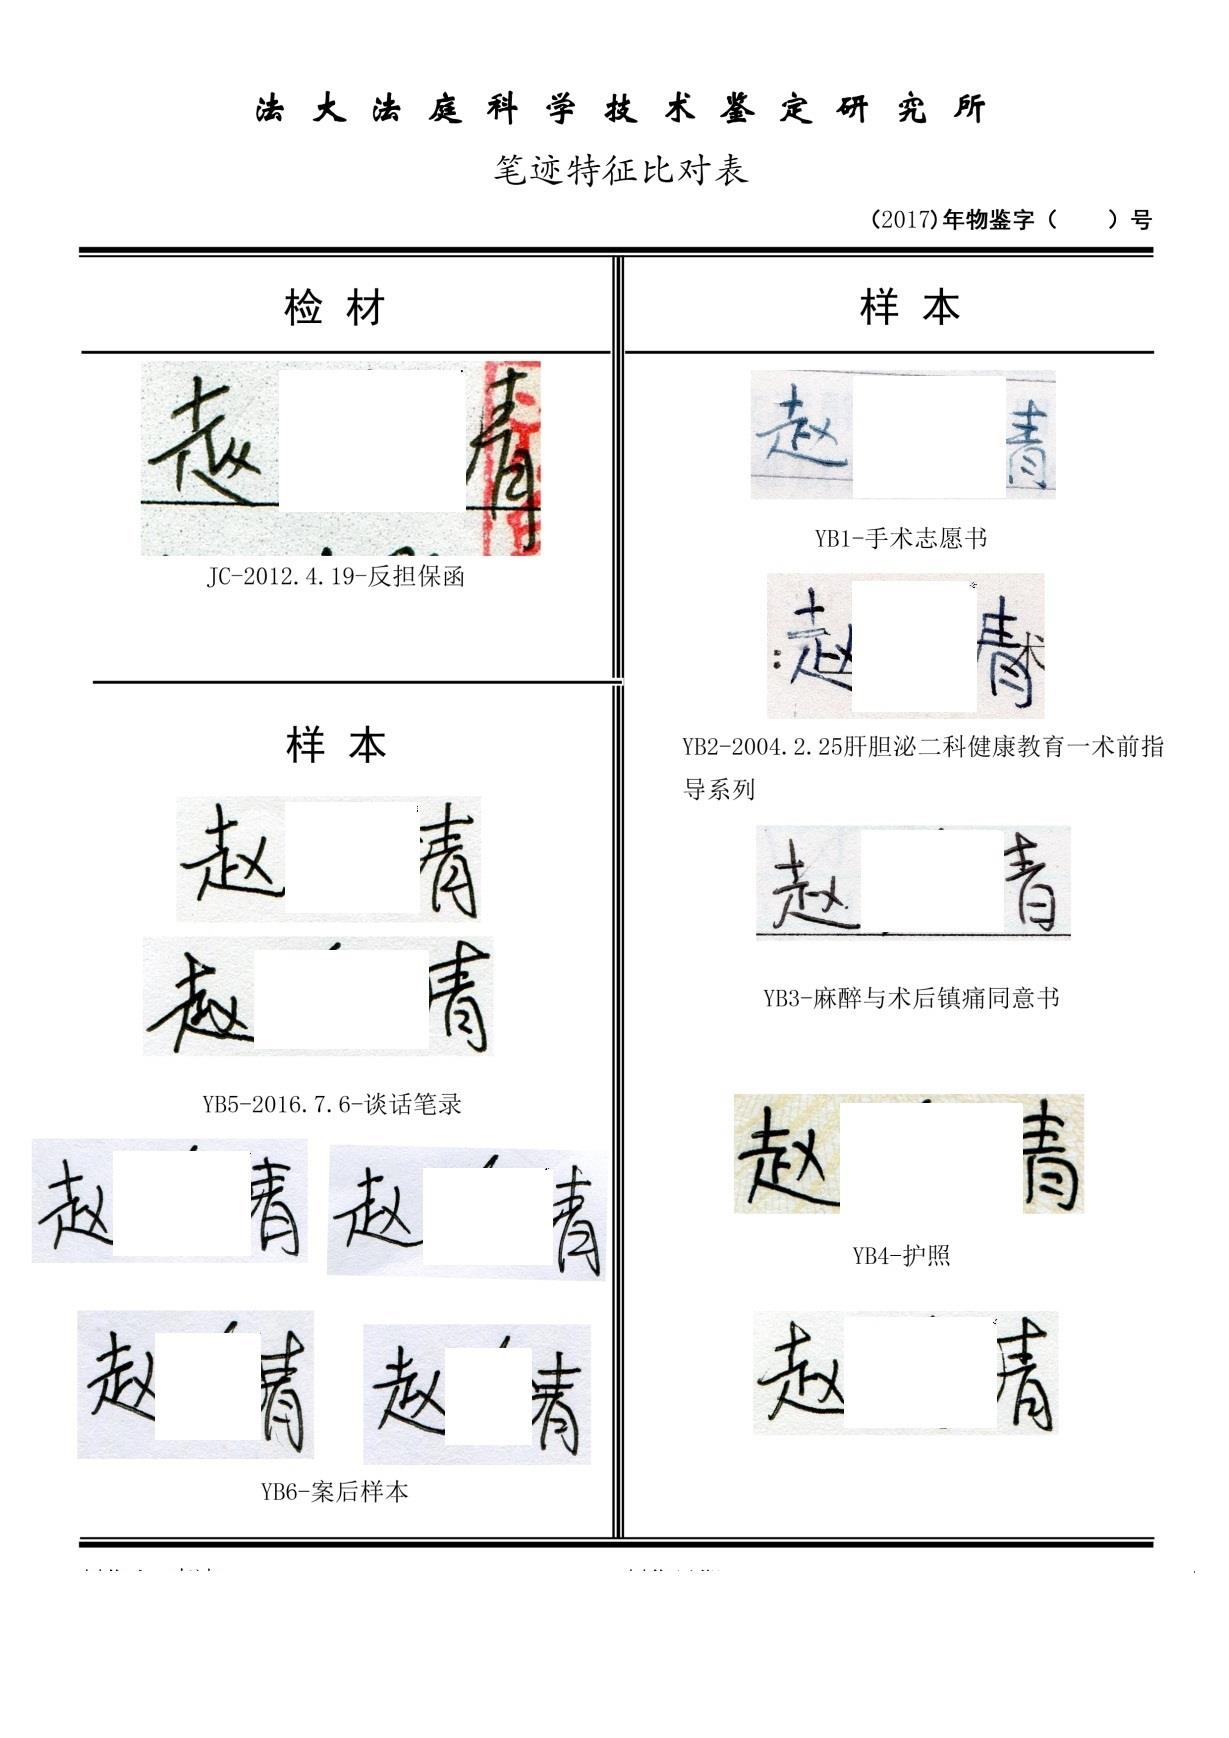 法大法庭科学技术鉴定研究所
笔迹特征比对表
(2017)年物鉴字（ ）号
检 材
赵 青
JC-2012.4.19-反担保函
样 本
赵 青
赵 青
YB5-2016.7.6-谈话笔录
赵 青 赵 青
赵 青 赵 青
YB6-案后样本
样 本
赵 青
YB1-手术志愿书
赵 青
术
YB2-2004.2.25肝胆泌二科健康教育一术前指
导系列
赵 青
YB3-麻醉与术后镇痛同意书
赵 青
YB4-护照
赵 青